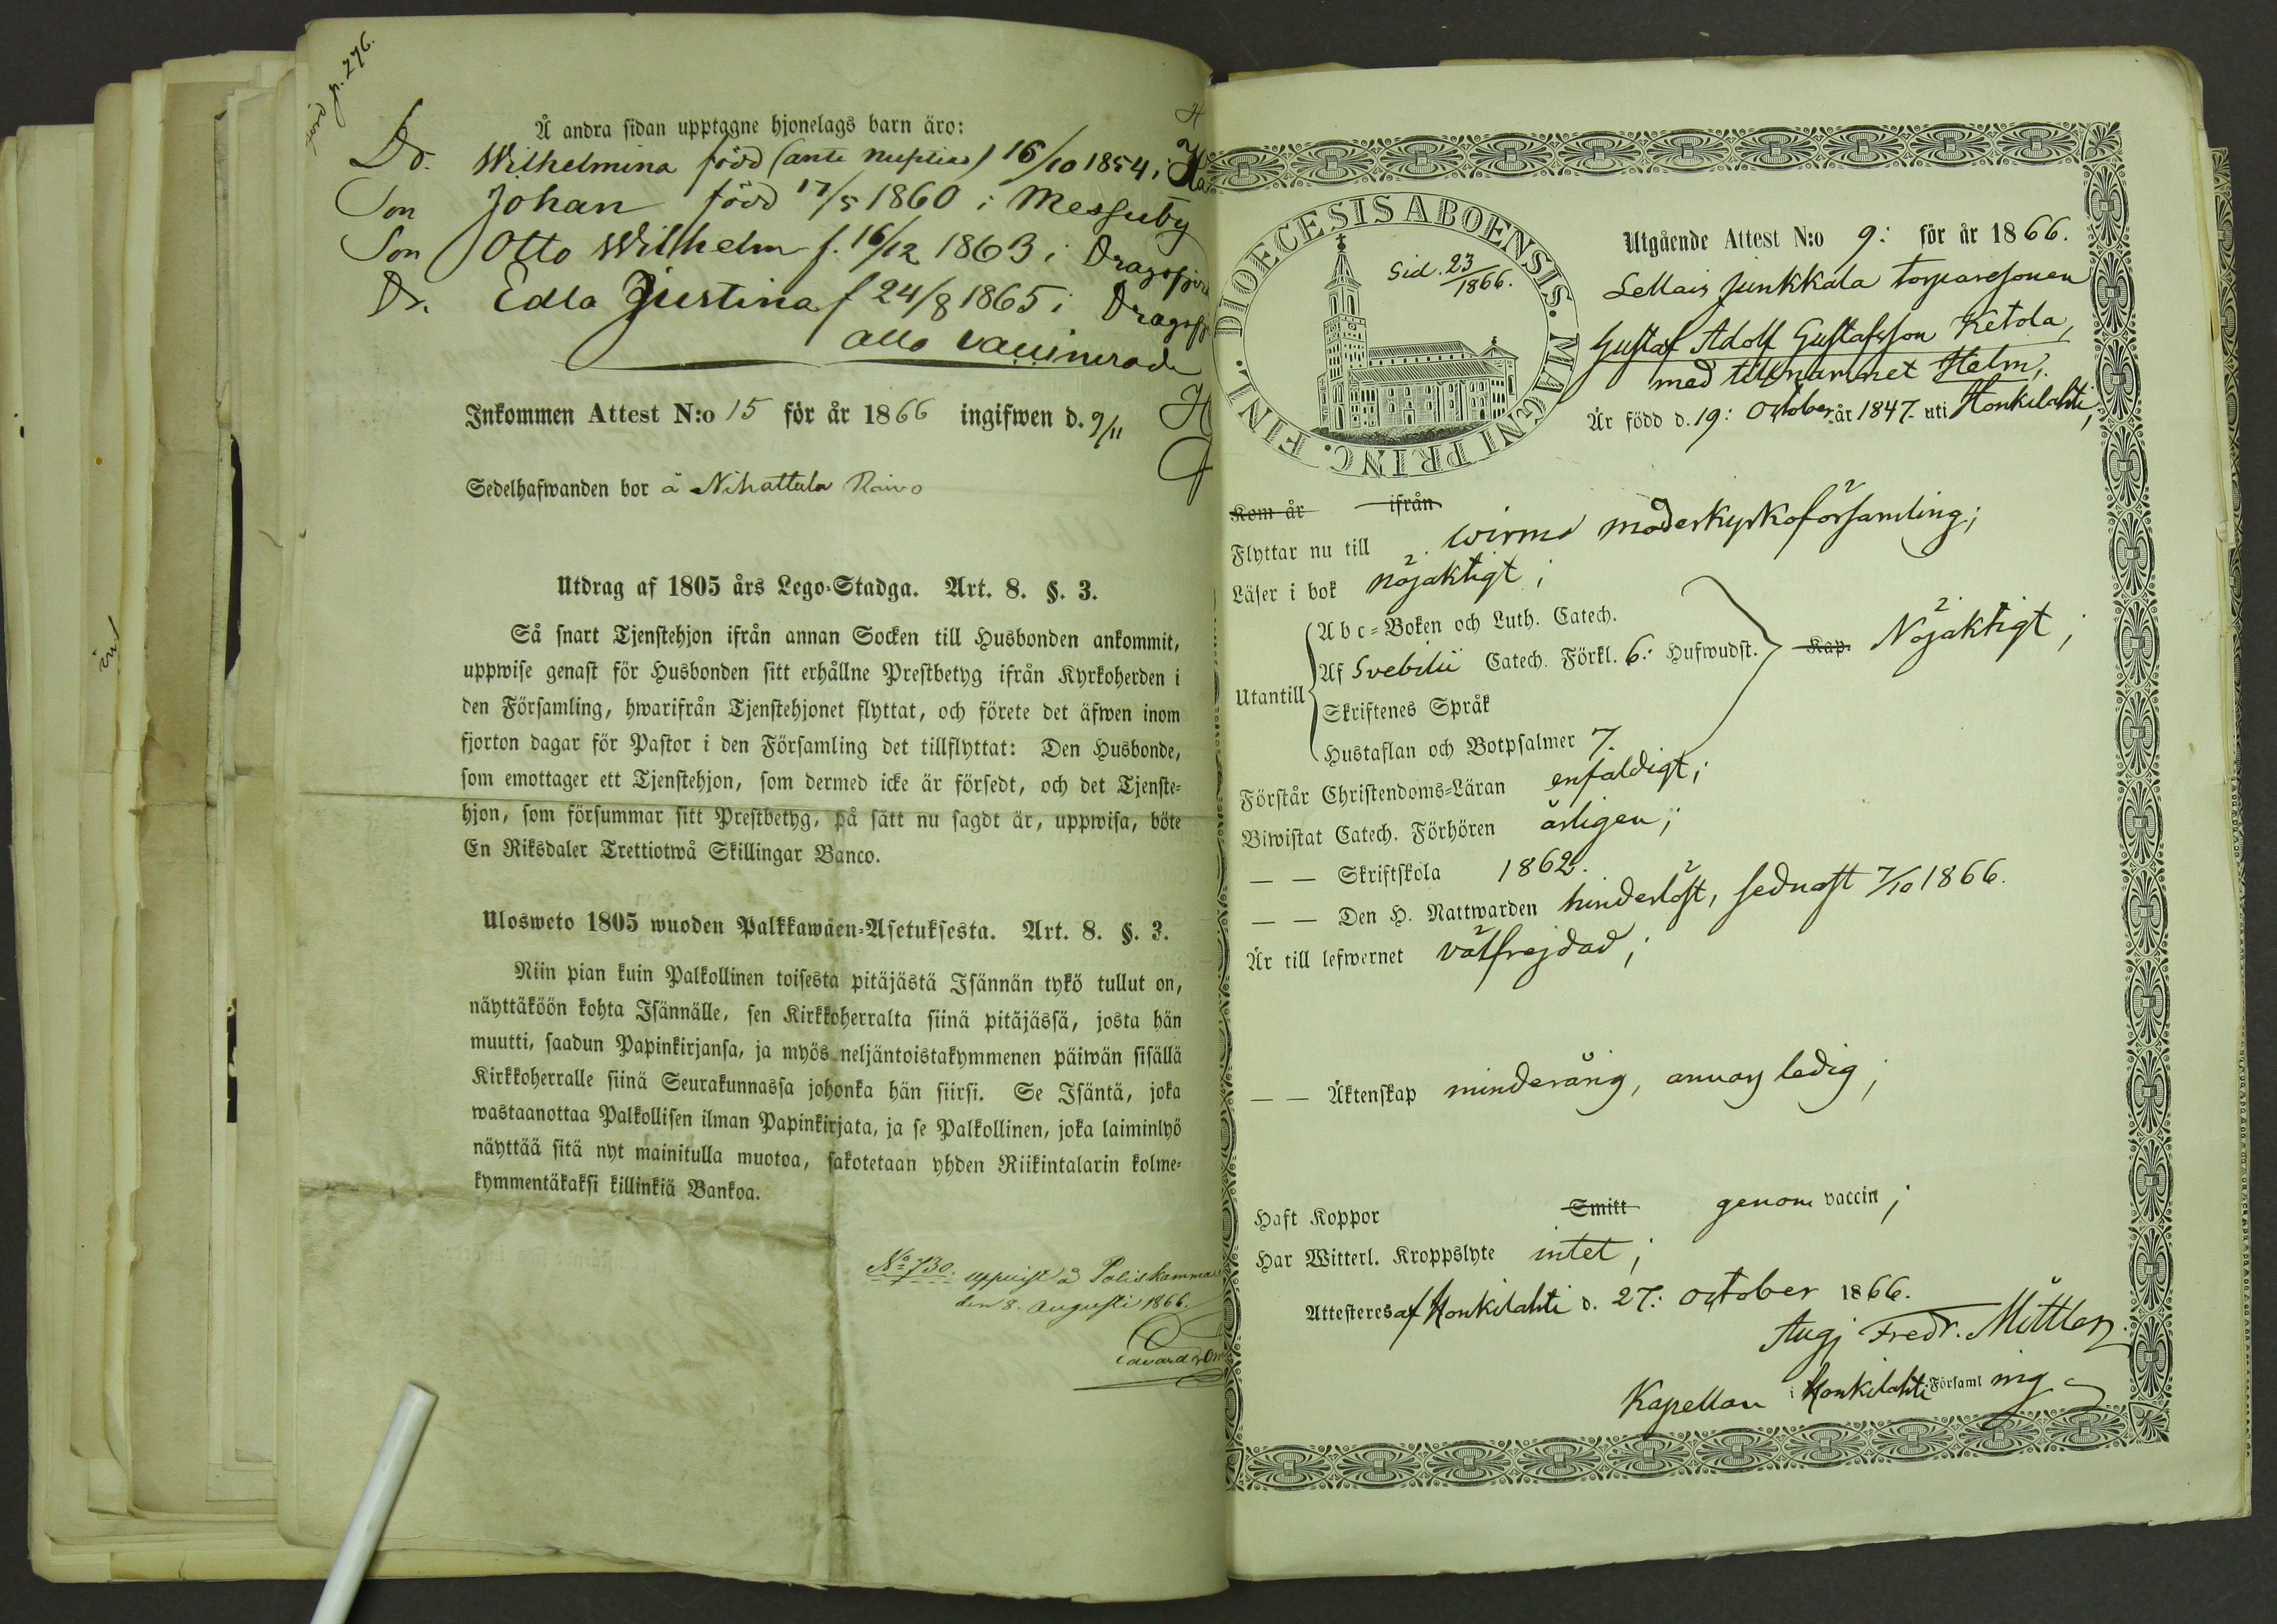 förd p. 276.
Å andra sidan upptagne hjonelags barn äro:
Dr. Wilhelmina född (ante nuptias) 16/10 1854 i
Son Johan född 17/5 1860 i Messuby
Son Otto Wilhelm f. 16/12 1863 i Dragsfj
Dr. Edla Justina f 24/8 1865 i Dragsfj
alla vaccinerade
Inkommen Attest N:o 15 för år 1866 ingifwen d. 9/11
Sedelhafwanden bor å Nihattula
Utdrag af 1805 års Lego-Stadga. Art. 8. §. 3.
Så snart Tjenstehjon ifrån annan Socken till Husbonden ankommit,
uppwise genast för Husbonden sitt erhållne Prestbetyg ifrån Kyrkoherden i
den Församling, hwarifrån Tjenstehjonet flyttat, och förete det äfwen inom
fjorton dagar för Pastor i den Församling det tillflyttat: Den Husbonde,
som emottager ett Tjenstehjon, som dermed icke är försedt, och det Tjenste-
hjon, som försummar sitt Prestbetyg, på sätt nu sagdt är, uppwisa, böte
En Riksdaler Trettiotwå Skillingar Banco.
Ulosweto 1805 wuoden Palkkawäen-Asetuksesta. Art. 8. §. 3.
Niin pian kuin Palkollinen toisesta pitäjästä Isännän tykö tullut on,
näyttäköön kohta Isännälle, sen Kirkkoherralta siinä pitäjässä, josta hän
muutti, saadun Papinkirjansa, ja myös neljäntoistakymmenen päiwän sisällä
Kirkkoherralle siinä Seurakunnassa johonka hän siirsi. Se Isäntä, joka
wastaanottaa Palkollisen ilman Papinkirjata, ja se Palkollinen, joka laiminlyö
näyttää sitä nyt mainitulla muotoa, sakotetaan yhden Riikintalarin kolme-
kymmentäkaksi killinkiä Bankoa.
No 730. uppvist å Poliskammaren
den 8. Augusti 1866.
Edvard
DIOECESIS ABOENSIS. MAGNI PRINC. FINL.
Sid. 23/1866.
Utgående Attest N:o 9: för år 1866.
Sellais Junkkala torparesonen
Gustaf Adolf Gustafsson Ketola,
med tillnamnet Helm,
Är född d. 19: October år 1847. uti Honkilahti;
Kom år ifrån
Flyttar nu till Wirmo moderkyrkoförsamling;
Läser i bok nöjaktigt;
Utantill
Abc-Boken och Luth. Catech.
Af Svebilii Catech. Förkl. 6: Hufwudst. Kap. Nöjaktigt;
Skriftenes Språk
Hustaflan och Botpsalmer 7.
Förstår Christendoms-Läran enfaldigt;
Biwistat Catech. Förhören årligen;
— — Skriftskola 1862.
— — Den H. Nattwarden hinderlöst, sednast 7/10 1866.
Är till lefwernet välfrejdad;
— — Äktenskap minderårig, annars ledig;
Haft Koppor Smitt genom vaccin;
Har Witterl. Kroppslyte intet;
Attesteres af Honkilahti d. 27: October 1866.
Aug. Fredr. Mittler
Kapellan i Honkilahti Församl ing